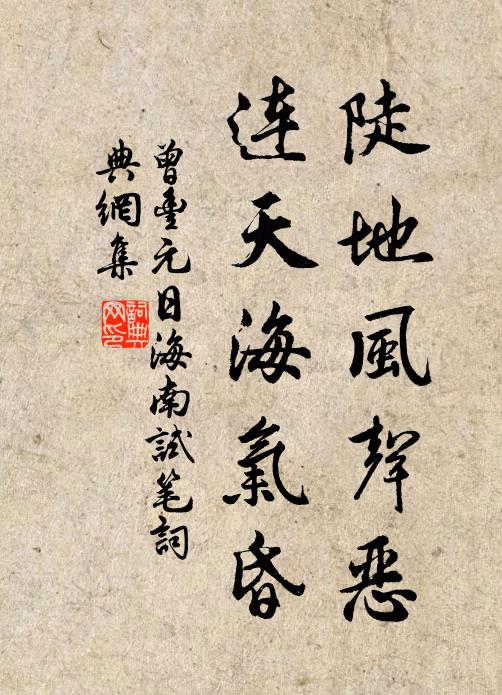 陡地風聲惡
連天海氣昏
曾豐元日海南試笔詞
典網集
詞典
网印